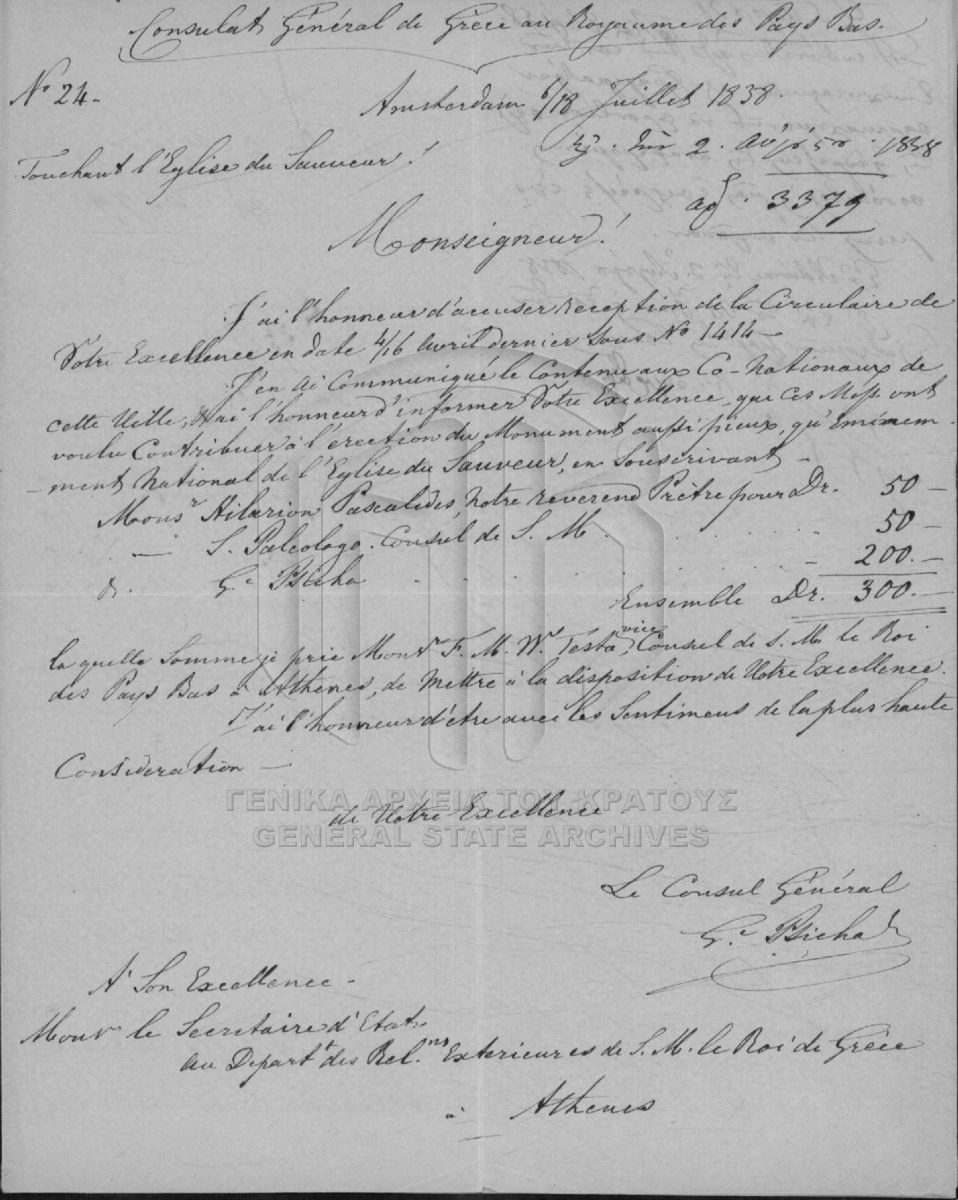 Consulat Général de Grèce au Royaume des Pays Bas.
No 24.
Amsterdam 6/18 Juillet 1838.
Touchant l'Eglise du Sauveur!
2. 1838
3379
Monseigneur!
J'ai l'honneur d'accuser reception de la Circulaire de
Votre Excellence en date 4/16 Avril dernier sous No 1414 —
J'en ai Communiqué le Contenu aux Co-Nationaux de
cette Ville, & ai l'honneur d'informer Votre Excellence, que ces Messrs ont
voulu Contribuer à l'erection du Monument aussi pieux, qu'Eminem-
-ment National de l'Eglise du Sauveur, en Souscrivant —
Monsr Hilarion Pascalides, Notre reverend Prètre pour Dr. 50 —
— S. Paleologo. Consul de S. M. . . . . 50 —
do. Ge Psicha . . . . . . 200. —
Ensemble Dr. 300. —
la quelle Somme je prie Monsr F. M. Ws Testa, vice Consul de S. M. le Roi
des Pays Bas à Athenes, de Mettre à la disposition de Votre Excellence.
J'ai l'honneur d'étre avec les Sentimens de la plus haute
Consideration —
de Votre Excellence
ΓΕΝΙΚΑ ΑΡΧΕΙΑ ΤΟΥ ΚΡΑΤΟΥΣ
GENERAL STATE ARCHIVES
Le Consul Général
Ge Psicha
A' Son Excellence -
Monsr le Secretaire d'Etat
au Departt des Relns Exterieures de S. M. le Roi de Grèce
à Athenes